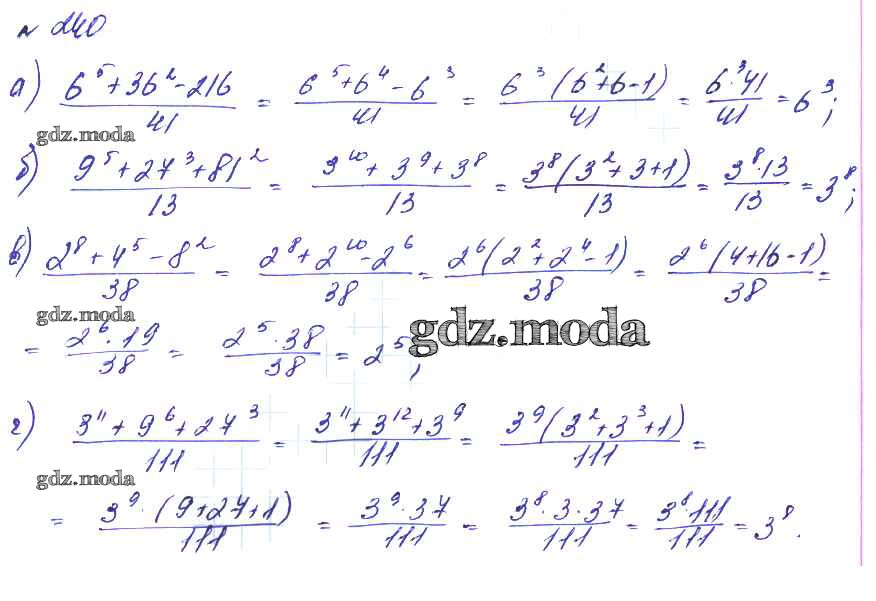 № 240
а) (6⁵+36²-216)/41 = (6⁵+6⁴-6³)/41 = (6³(6²+6-1))/41 = (6³·41)/41 = 6³;
gdz.moda
б) (9⁵+27³+81²)/13 = (3¹⁰+3⁹+3⁸)/13 = (3⁸(3²+3+1))/13 = (3⁸·13)/13 = 3⁸;
в) (2⁸+4⁵-8²)/38 = (2⁸+2¹⁰-2⁶)/38 = (2⁶(2²+2⁴-1))/38 = (2⁶(4+16-1))/38 =
gdz.moda
gdz.moda
= (2⁶·19)/38 = (2⁵·38)/38 = 2⁵;
г) (3¹¹+9⁶+27³)/111 = (3¹¹+3¹²+3⁹)/111 = (3⁹(3²+3³+1))/111 =
gdz.moda
= (3⁹·(9+27+1))/111 = (3⁹·37)/111 = (3⁸·3·37)/111 = (3⁸·111)/111 = 3⁸.